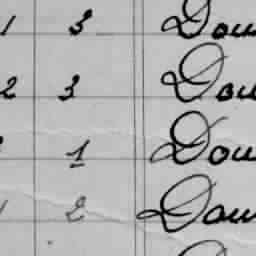 1 3 Dou
2 3 Dou
1 Dou
1 2 Dou